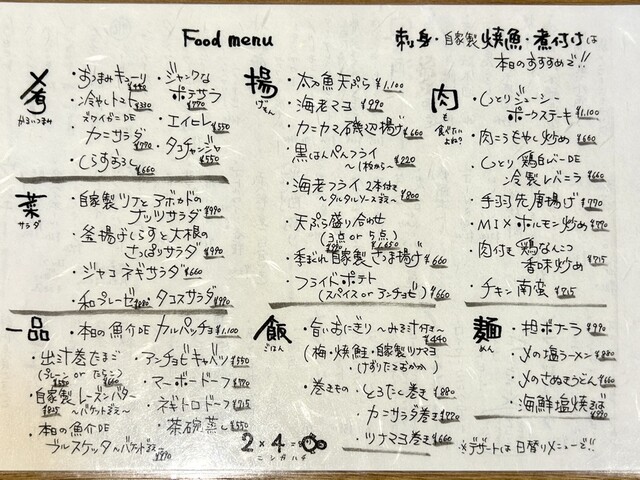 Food menu
刺身・自家製 焼魚・煮付けは
本日のおすすめで!!
肴
かるいつまみ
・おつまみキューリ ¥440
・冷やしトマト ¥330
・ズワイガニDE
カニサラダ ¥770
・しらすおろし ¥660
・ジャンクな
ポテサラ ¥770
・エイヒレ ¥550
・タコチャンジャ ¥550
菜
サラダ
・自家製ツナとアボカドの
ナッツサラダ ¥990
・釜揚げしらすと大根の
さっぱりサラダ ¥990
・ジャコネギサラダ ¥660
・和プレーゼ ¥880
・タコスサラダ ¥990
一品
・本日の魚介DE カルパッチョ ¥1,100
・出汁巻たまご
(プレーン or たらこ)
¥550 ¥660
・自家製レーズンバター ¥825
〜バケット添え〜
・本日の魚介DE
ブルスケッタ〜バケット添え ¥990
・アンチョビキャベツ ¥550
・マーボードーフ ¥770
・ネギトロドーフ ¥715
・茶碗蒸し ¥550
揚
げもん
・太刀魚天ぷら ¥1,100
・海老マヨ ¥990
・カニカマ磯辺揚げ ¥660
・黒はんぺんフライ
〜1枚〜 ¥220
・海老フライ 2本付
〜タルタルソース添え〜 ¥800
・天ぷら盛り合わせ
(3点 or 5点)
¥1,650
・季まぐれ自家製さつま揚げ ¥660
・フライドポテト
(スパイス or アンチョビ) ¥660
飯
ごはん
・旨いおにぎり〜みそ汁付き〜 ¥440
(梅・焼鮭・自家製ツナマヨ
・けずりたておかか)
・巻きもの
・とろたく巻き ¥880
・カニサラダ巻き ¥770
・ツナマヨ巻き ¥660
肉
も
食べたい
よね?
・しっとりジューシー
ポークステーキ ¥1,100
・肉ニラもやし炒め ¥660
・しっとり鶏白レバーDE
冷製レバニラ ¥660
・手羽先唐揚げ ¥770
・MIXホルモン炒め ¥770
・肉付き鶏なんこつ
香味炒め ¥715
・チキン南蛮 ¥715
麺
めん
・担ボナーラ ¥990
・〆の塩ラーメン ¥880
・〆のさぬきうどん ¥660
・海鮮塩焼そば ¥990
2×4=8
ニシガハチ
※デザートは日替りメニューで!!